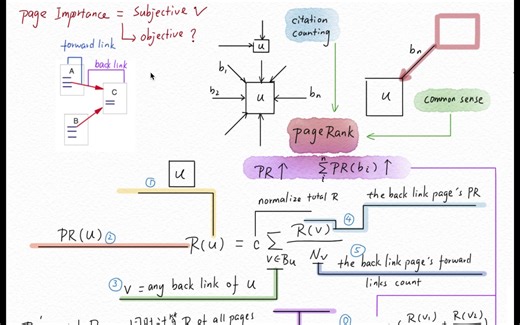 page Importance = Subjective √
objective ?
forward link
back link
A
C
B
u
b₁
b₂
u
bₙ
citation counting
bₙ
u
common sense
pageRank
PR ↑ ∑ᵢⁿ PR(bᵢ) ↑
u
①
normalize total R
the back link page's PR
④
PR(u) ②
R(u) = c ∑ᵥ∈Bᵤ R(v) / Nᵥ
⑤
③ v = any back link of u
the back link page's forward
links count
of all pages